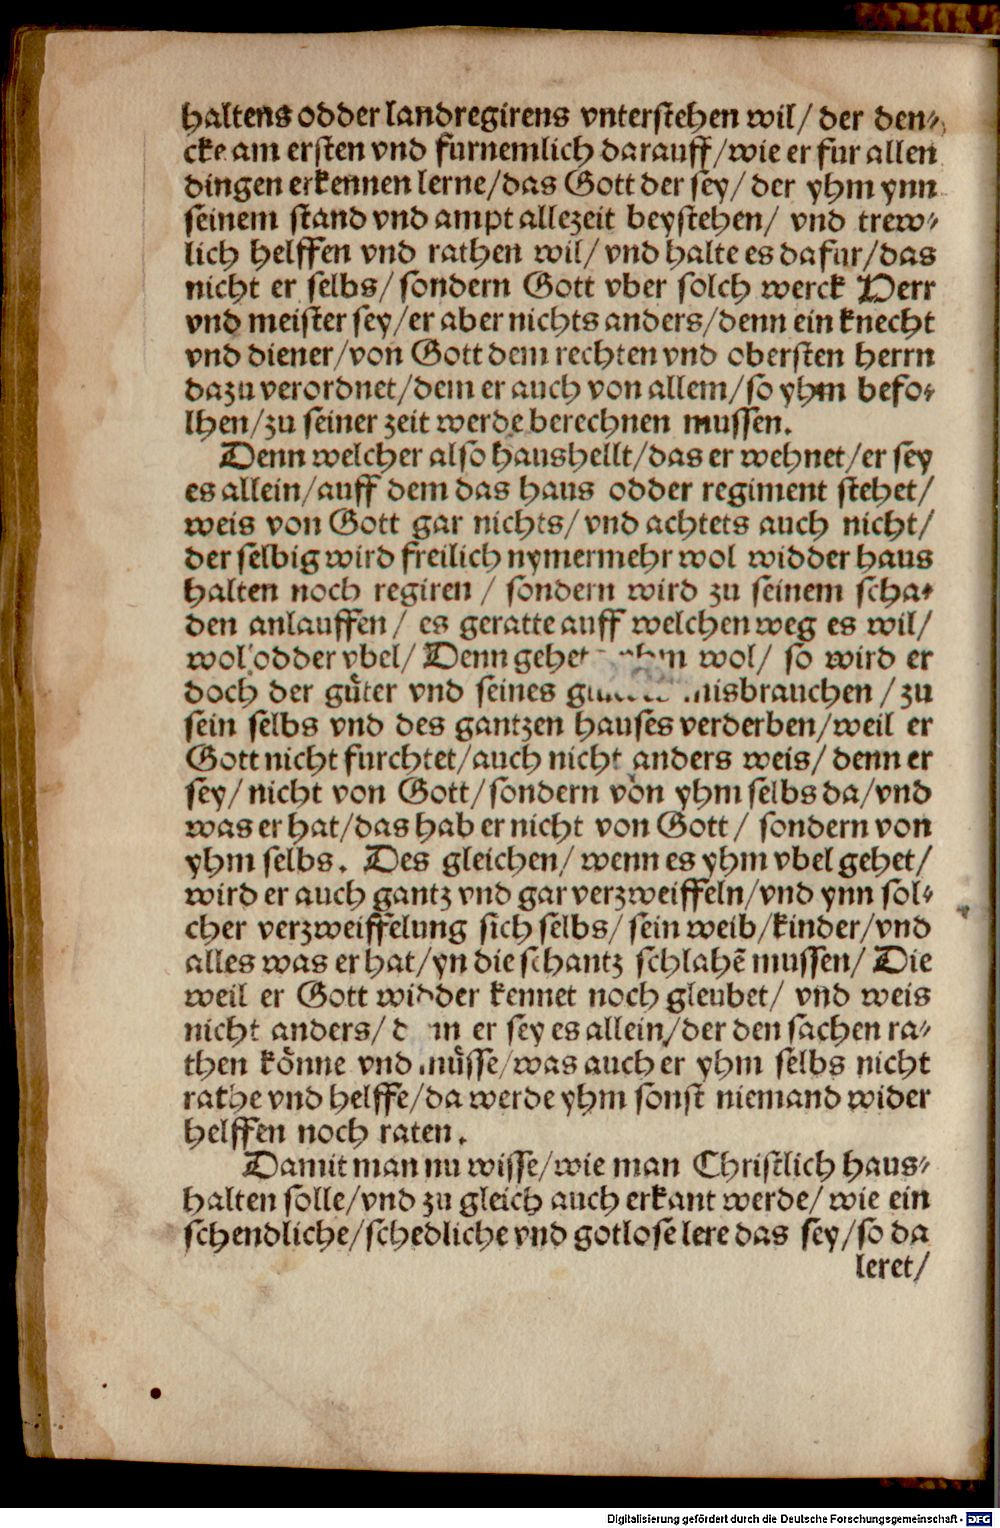 haltens odder landregirens vnterstehen wil/ der den-
cke am ersten vnd furnemlich darauff/wie er fur allen
dingen erkennen lerne/das Gott der sey/ der yhm ynn
seinem stand vnd ampt allezeit beystehen/ vnd trew-
lich helffen vnd rathen wil/ vnd halte es dafur/das
nicht er selbs/ sondern Gott vber solch werck Herr
vnd meister sey/er aber nichts anders/denn ein knecht
vnd diener/von Gott dem rechten vnd obersten herrn
dazu verordnet/dem er auch von allem/so yhm befo-
lhen/zu seiner zeit werde berechnen mussen.
Denn welcher also haushellt/das er wehnet/er sey
es allein/auff dem das haus odder regiment stehet/
weis von Gott gar nichts/ vnd achtets auch nicht/
der selbig wird freilich nymermehr wol widder haus
halten noch regiren / sondern wird zu seinem scha-
den anlauffen/ es geratte auff welchen weg es wil/
wol odder vbel/ Denn gehet wol/ so wird er
doch der gůter vnd seines misbrauchen / zu
sein selbs vnd des gantzen hauses verderben/weil er
Gott nicht furchtet/auch nicht anders weis/ denn er
sey/ nicht von Gott/sondern von yhm selbs da/vnd
was er hat/das hab er nicht von Gott/ sondern von
yhm selbs. Des gleichen/ wenn es yhm vbel gehet/
wird er auch gantz vnd gar verzweiffeln/vnd ynn sol-
cher verzweiffelung sich selbs/ sein weib/kinder/vnd
alles was er hat/yn die schantz schlahẽ mussen/ Die
weil er Gott widder kennet noch gleubet/ vnd weis
nicht anders/ er sey es allein/der den sachen ra-
then kőnne vnd můsse/was auch er yhm selbs nicht
rathe vnd helffe/da werde yhm sonst niemand wider
helffen noch raten.
Damit man nu wisse/wie man Christlich haus-
halten solle/vnd zu gleich auch erkant werde/ wie ein
schendliche/schedliche vnd gotlose lere das sey/so da
leret/
Digitalisierung gefördert durch die Deutsche Forschungsgemeinschaft - DFG